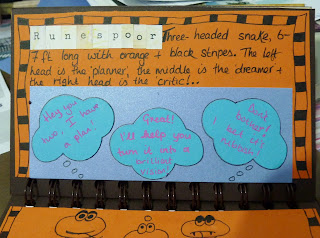 Runespoor Three-headed snake, 6-
7ft long with orange + black stripes. The left
head is the 'planner', the middle is the 'dreamer' +
the right head is the 'critic'...
Hey you
two, I have
a plan!
Great!
I'll help you
turn it into a
brilliant
vision!
Don't
bother!
I bet it's
rubbish!